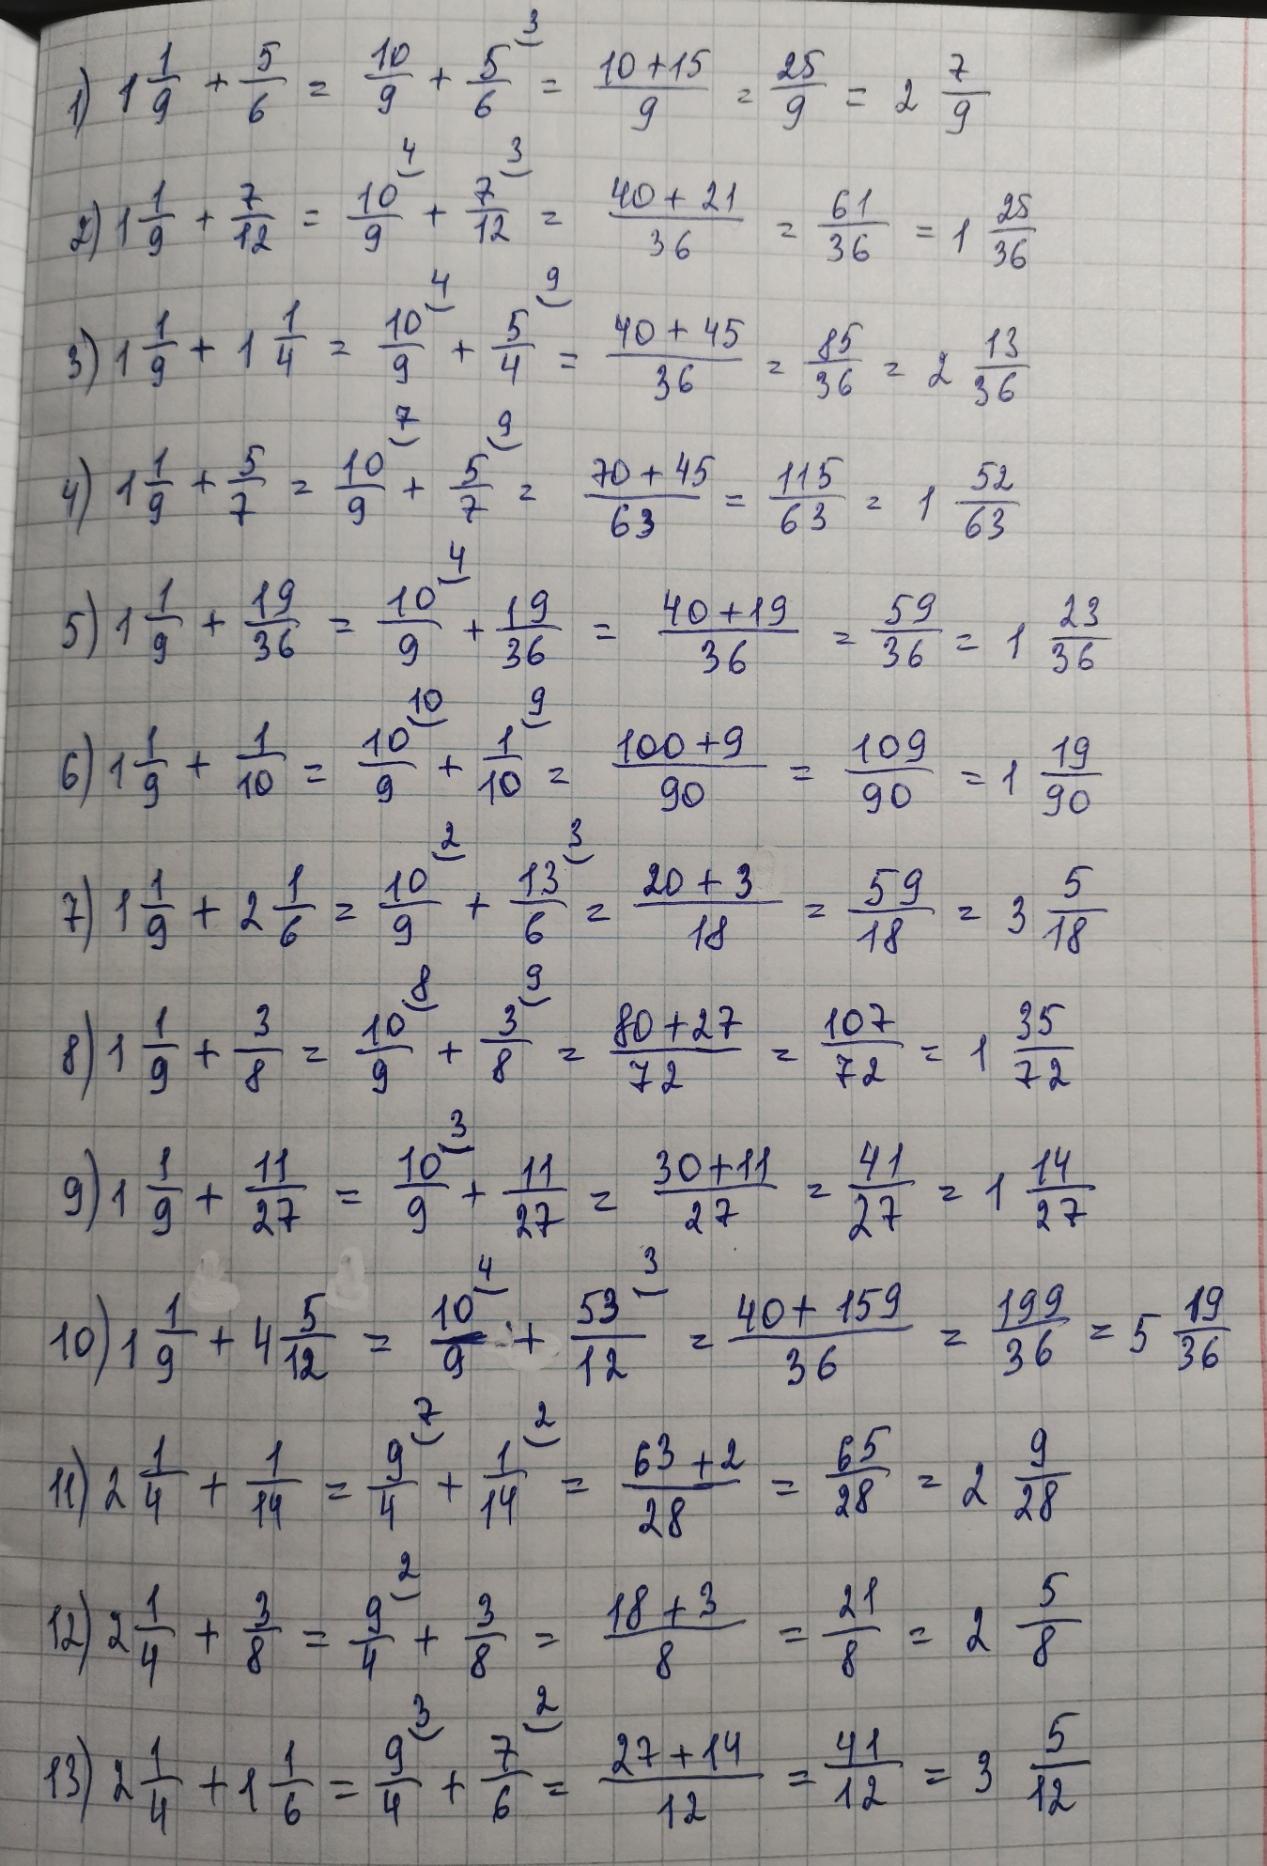 1) 1 1/9 + 5/6 = 10/9 + 5/6 (3 = (10+15)/9 = 25/9 = 2 7/9
2) 1 1/9 + 7/12 = 10/9 (4 + 7/12 (3 = (40+21)/36 = 61/36 = 1 25/36
3) 1 1/9 + 1 1/4 = 10/9 (4 + 5/4 (9 = (40+45)/36 = 85/36 = 2 13/36
4) 1 1/9 + 5/7 = 10/9 (7 + 5/7 (9 = (70+45)/63 = 115/63 = 1 52/63
5) 1 1/9 + 19/36 = 10/9 (4 + 19/36 = (40+19)/36 = 59/36 = 1 23/36
6) 1 1/9 + 1/10 = 10/9 (10 + 1/10 (9 = (100+9)/90 = 109/90 = 1 19/90
7) 1 1/9 + 2 1/6 = 10/9 (2 + 13/6 (3 = (20+3)/18 = 59/18 = 3 5/18
8) 1 1/9 + 3/8 = 10/9 (8 + 3/8 (9 = (80+27)/72 = 107/72 = 1 35/72
9) 1 1/9 + 11/27 = 10/9 (3 + 11/27 = (30+11)/27 = 41/27 = 1 14/27
10) 1 1/9 + 4 5/12 = 10/9 (4 + 53/12 (3 = (40+159)/36 = 199/36 = 5 19/36
11) 2 1/4 + 1/14 = 9/4 (7 + 1/14 (2 = (63+2)/28 = 65/28 = 2 9/28
12) 2 1/4 + 3/8 = 9/4 (2 + 3/8 = (18+3)/8 = 21/8 = 2 5/8
13) 2 1/4 + 1 1/6 = 9/4 (3 + 7/6 (2 = (27+14)/12 = 41/12 = 3 5/12